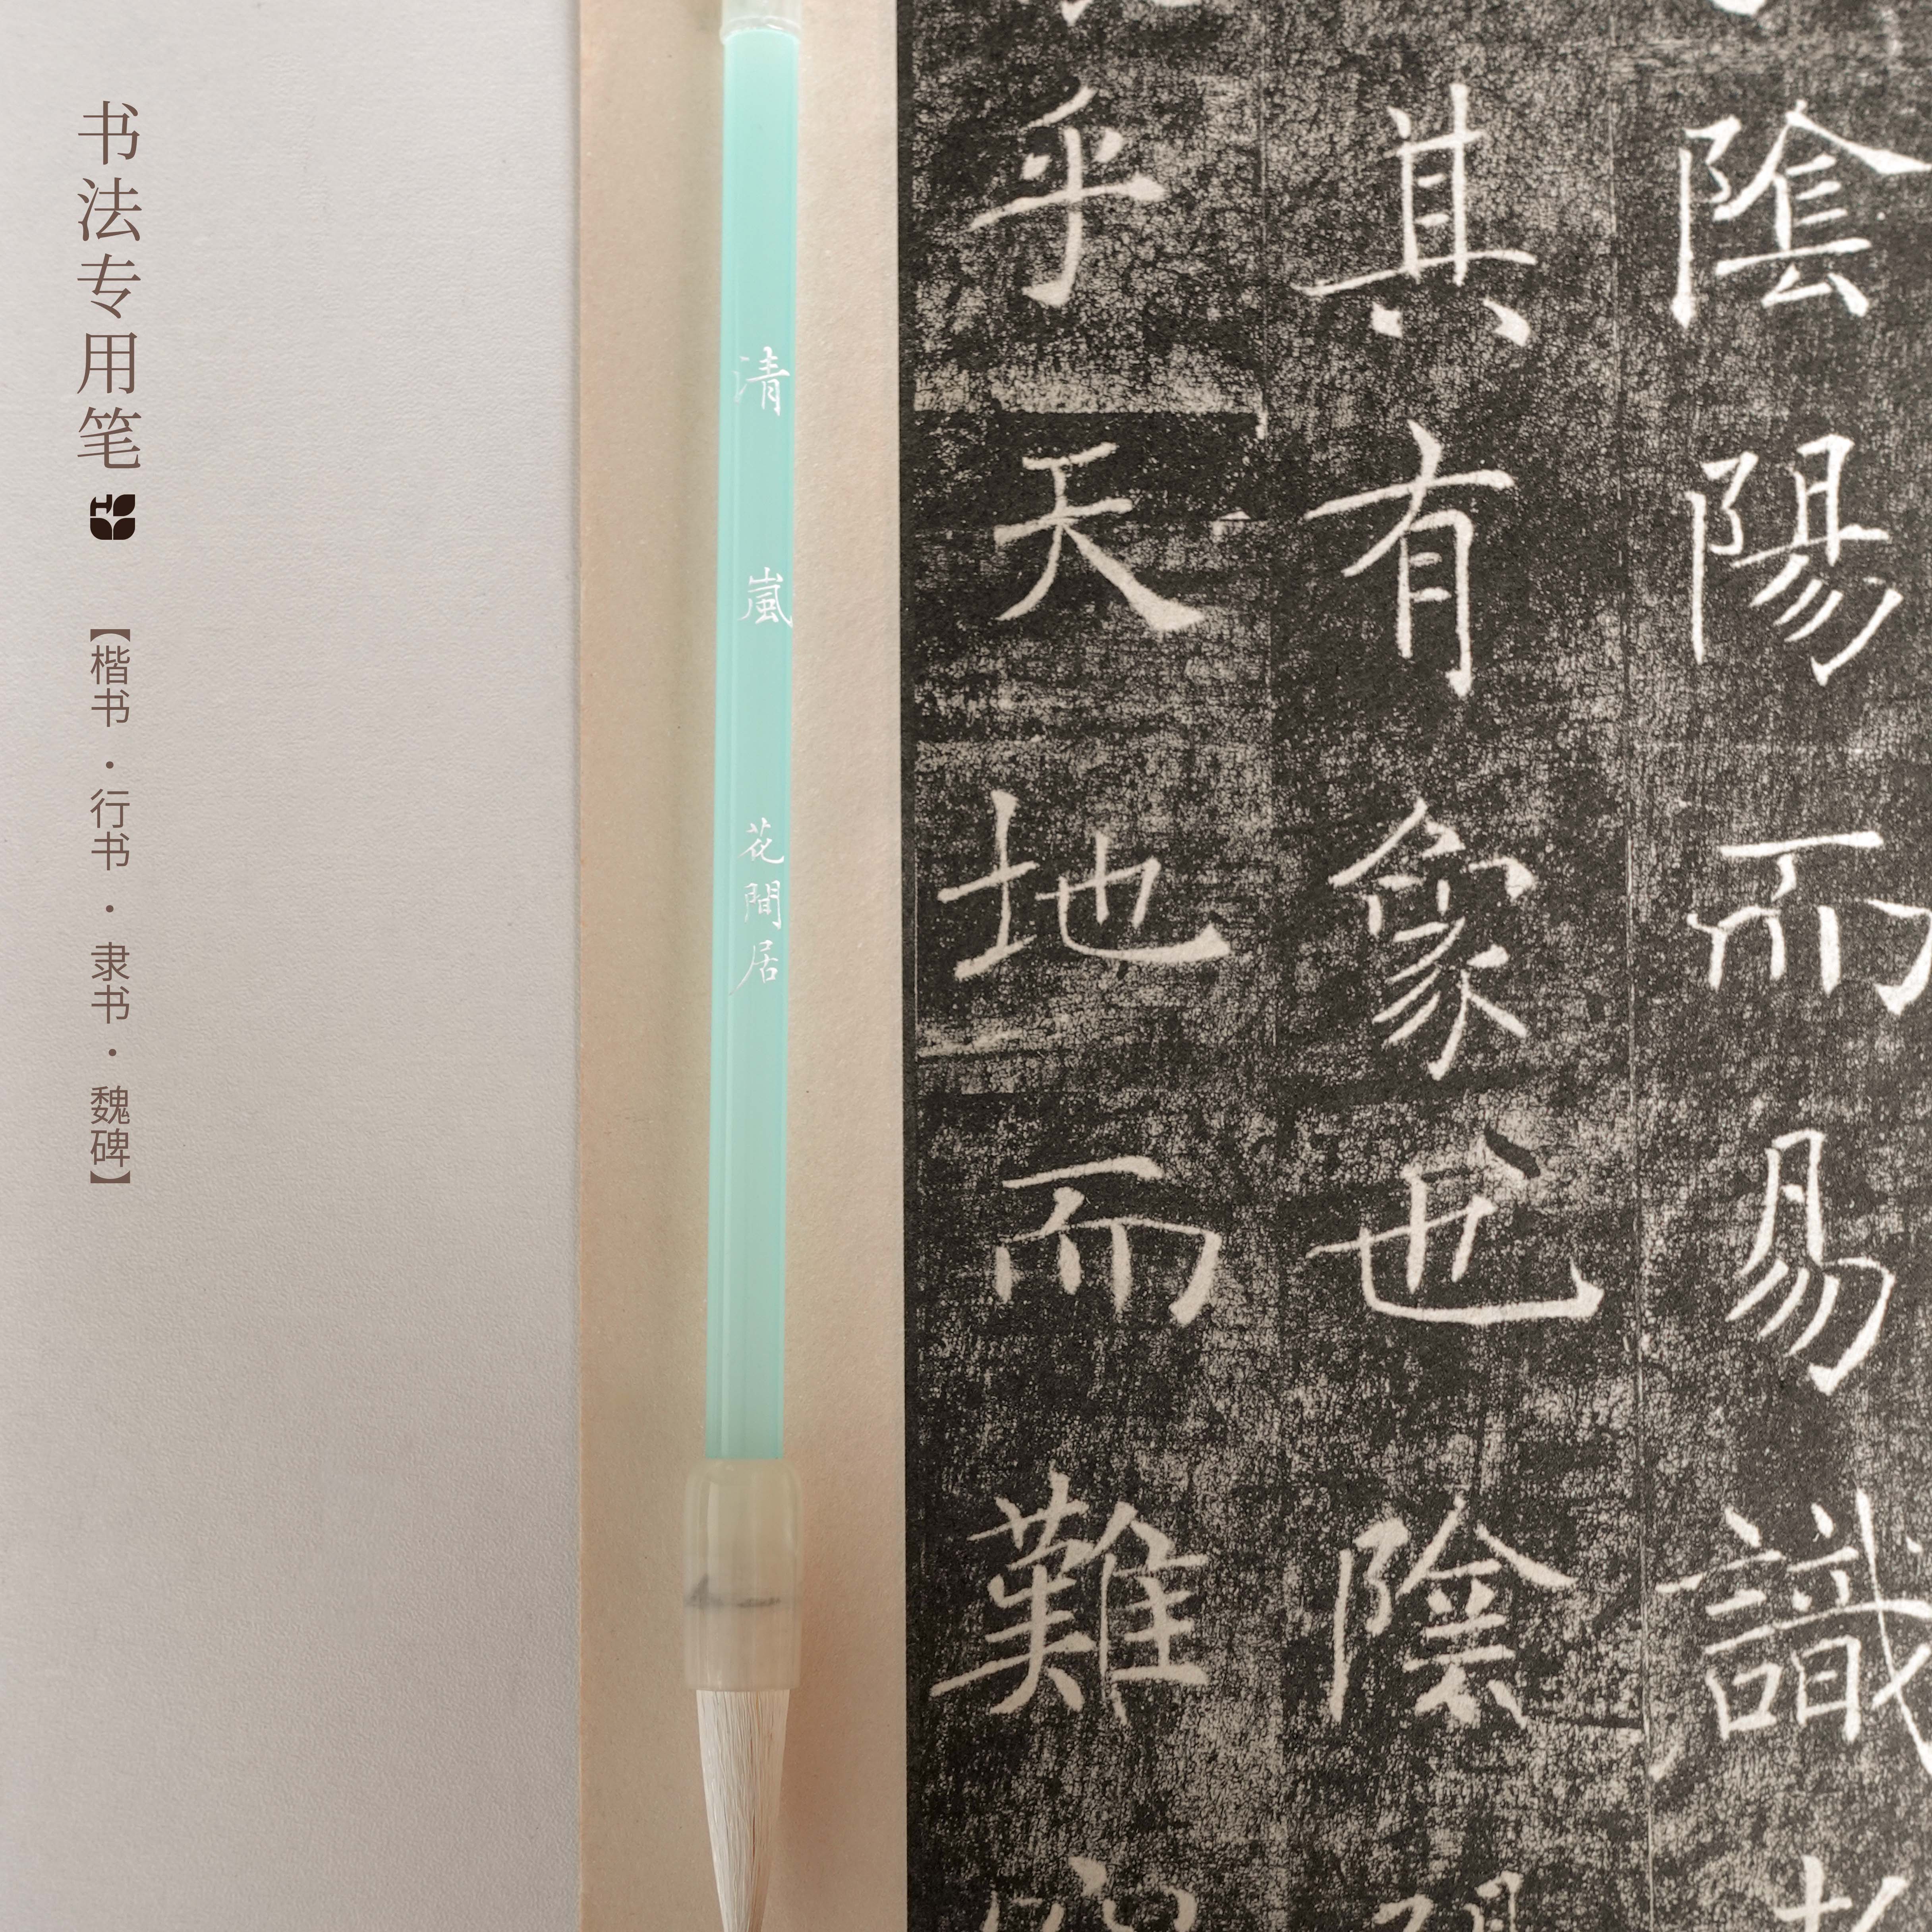 书法专用笔
【楷书·行书·隶书·魏碑】
清嵐
花間居
陰陽而易識
其有象也陰
乎天地而難